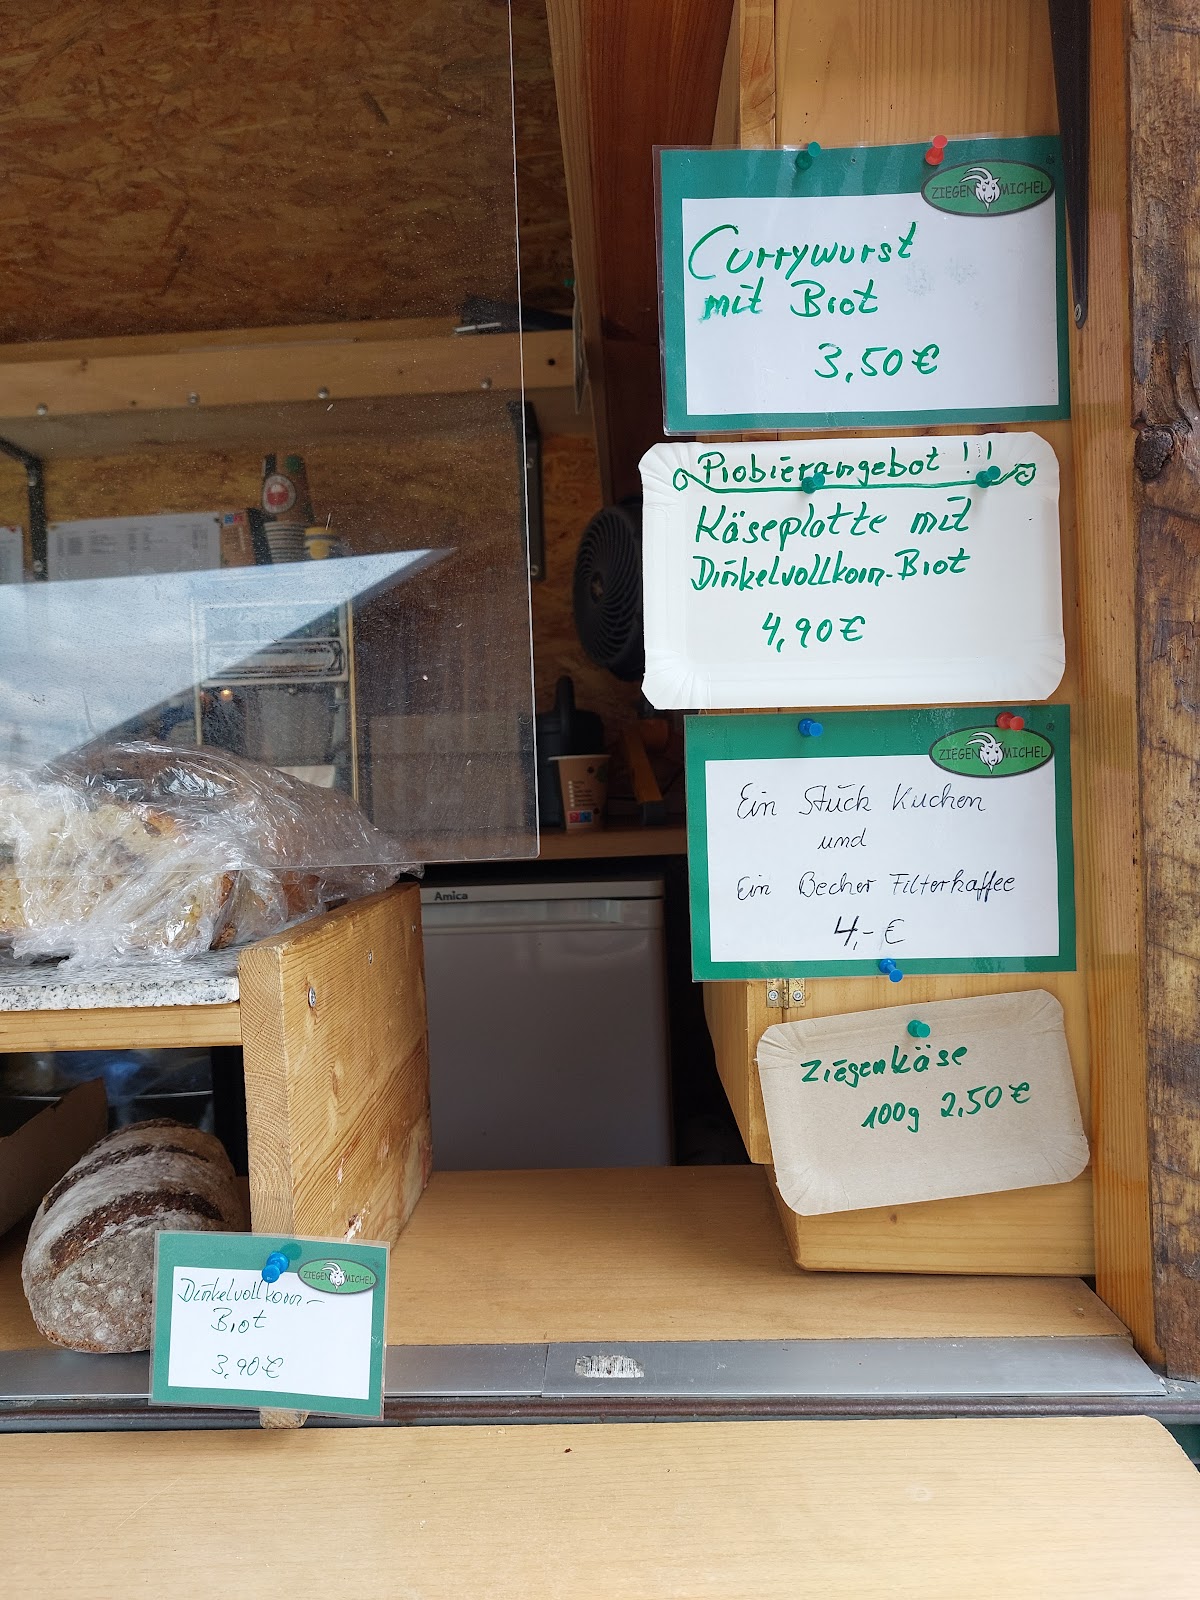 ZIEGEN MICHEL
Currywurst
mit Brot
3,50 €
Probierangebot !!!
Käseplatte mit
Dinkelvollkorn-Brot
4,90 €
ZIEGEN MICHEL
Ein Stück Kuchen
und
Ein Becher Filterkaffee
4,- €
Amica
Ziegenkäse
100g 2,50 €
ZIEGEN MICHEL
Dinkelvollkorn-
Brot
3,90 €